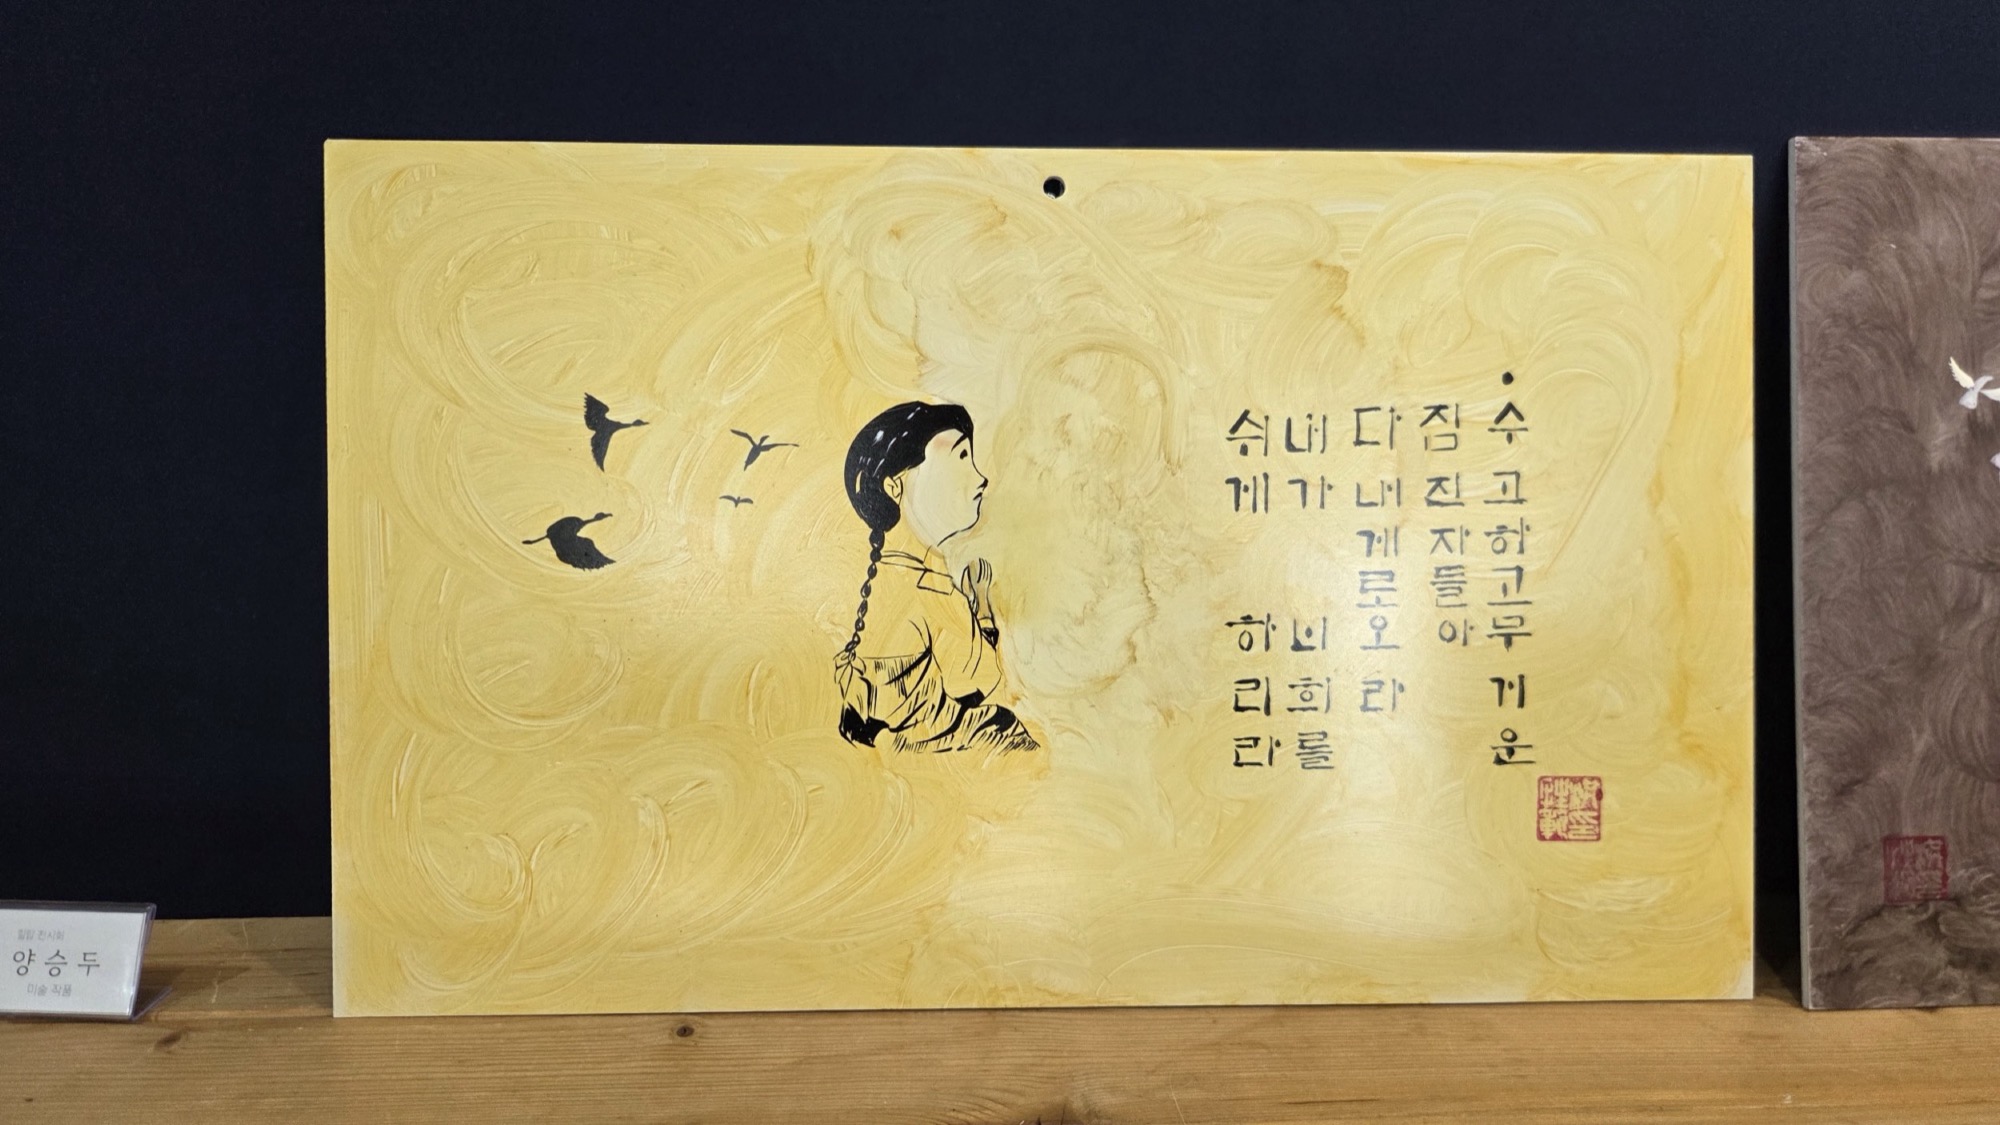 수고하고무거운
짐진자들아
다내게로오라
내가 너희를
쉬게 하리라
전시회
양승두
미술 작품